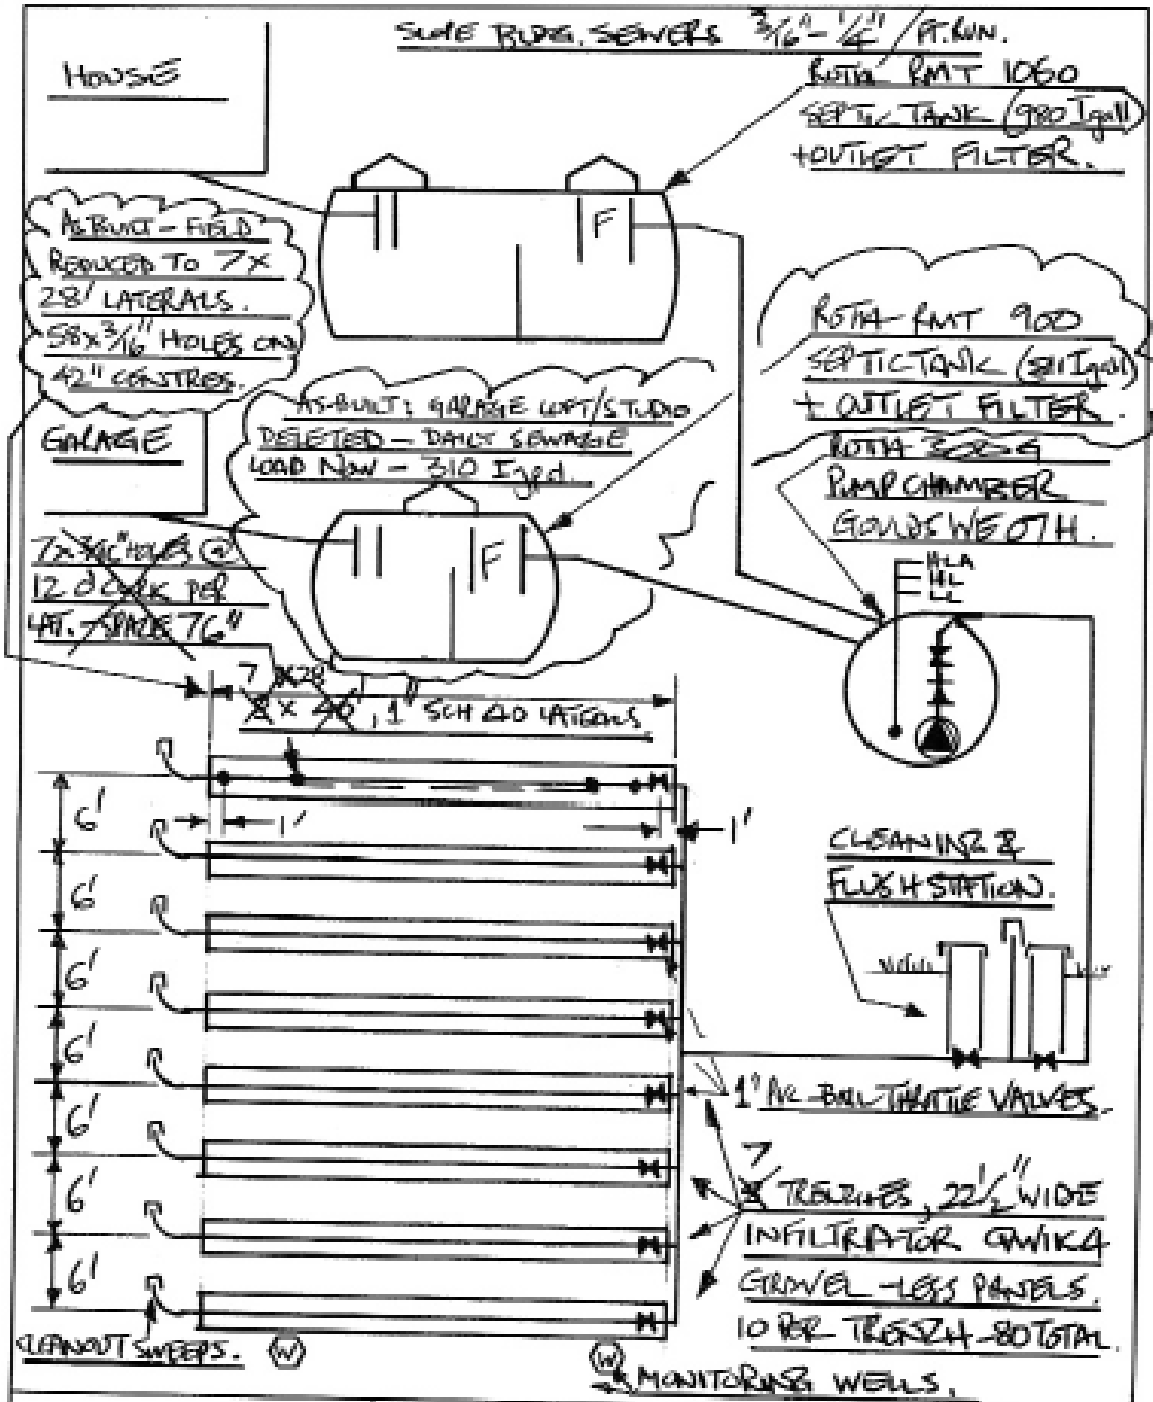 SLOPE BLDG. SEWERS 3/16" - 1/4" / FT. RUN.
HOUSE
ROTH RMT 1060
SEPTIC TANK (980 Igall)
+ OUTLET FILTER.
F
AS BUILT - FIELD
REDUCED TO 7 X
28' LATERALS.
58 x 3/16" HOLES ON
42" CENTRES.
ROTH RMT 900
SEPTIC TANK (Igall)
+ OUTLET FILTER.
AS-BUILT: GARAGE LOFT/STUDIO
DELETED - DAILY SEWAGE
LOAD NOW - 310 Igpd.
GARAGE
F
ROTH
PUMP CHAMBER
GOULDS WE 07H.
HLA
HL
LL
7 x 3/16" HOLES @
12 O'CLOCK PER
LAT. SPACE 76"
7 X 28
8 x 46', 1" SCH 40 LATERALS
6'
1'
1'
6'
6'
6'
6'
6'
6'
CLEANING &
FLUSH STATION.
1" PVC BALL THROTTLE VALVES.
7
8 TRENCHES, 22 1/2" WIDE
INFILTRATOR QWIK4
GRAVEL-LESS PANELS.
10 PER TRENCH - 80 TOTAL.
CLEANOUT SWEEPS.
W
W
MONITORING WELLS.